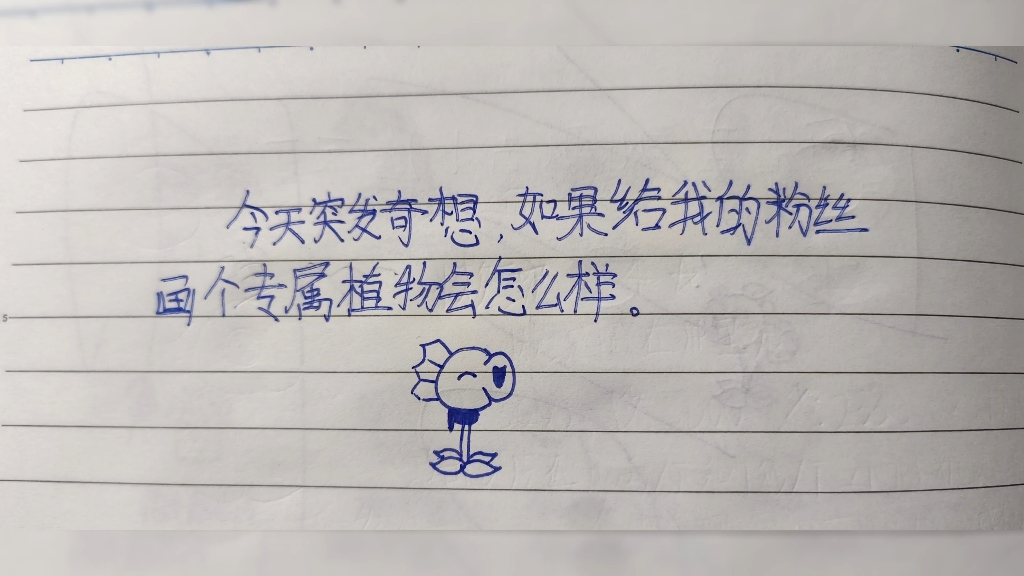 今天突发奇想,如果给我的粉丝
画个专属植物会怎么样。
5